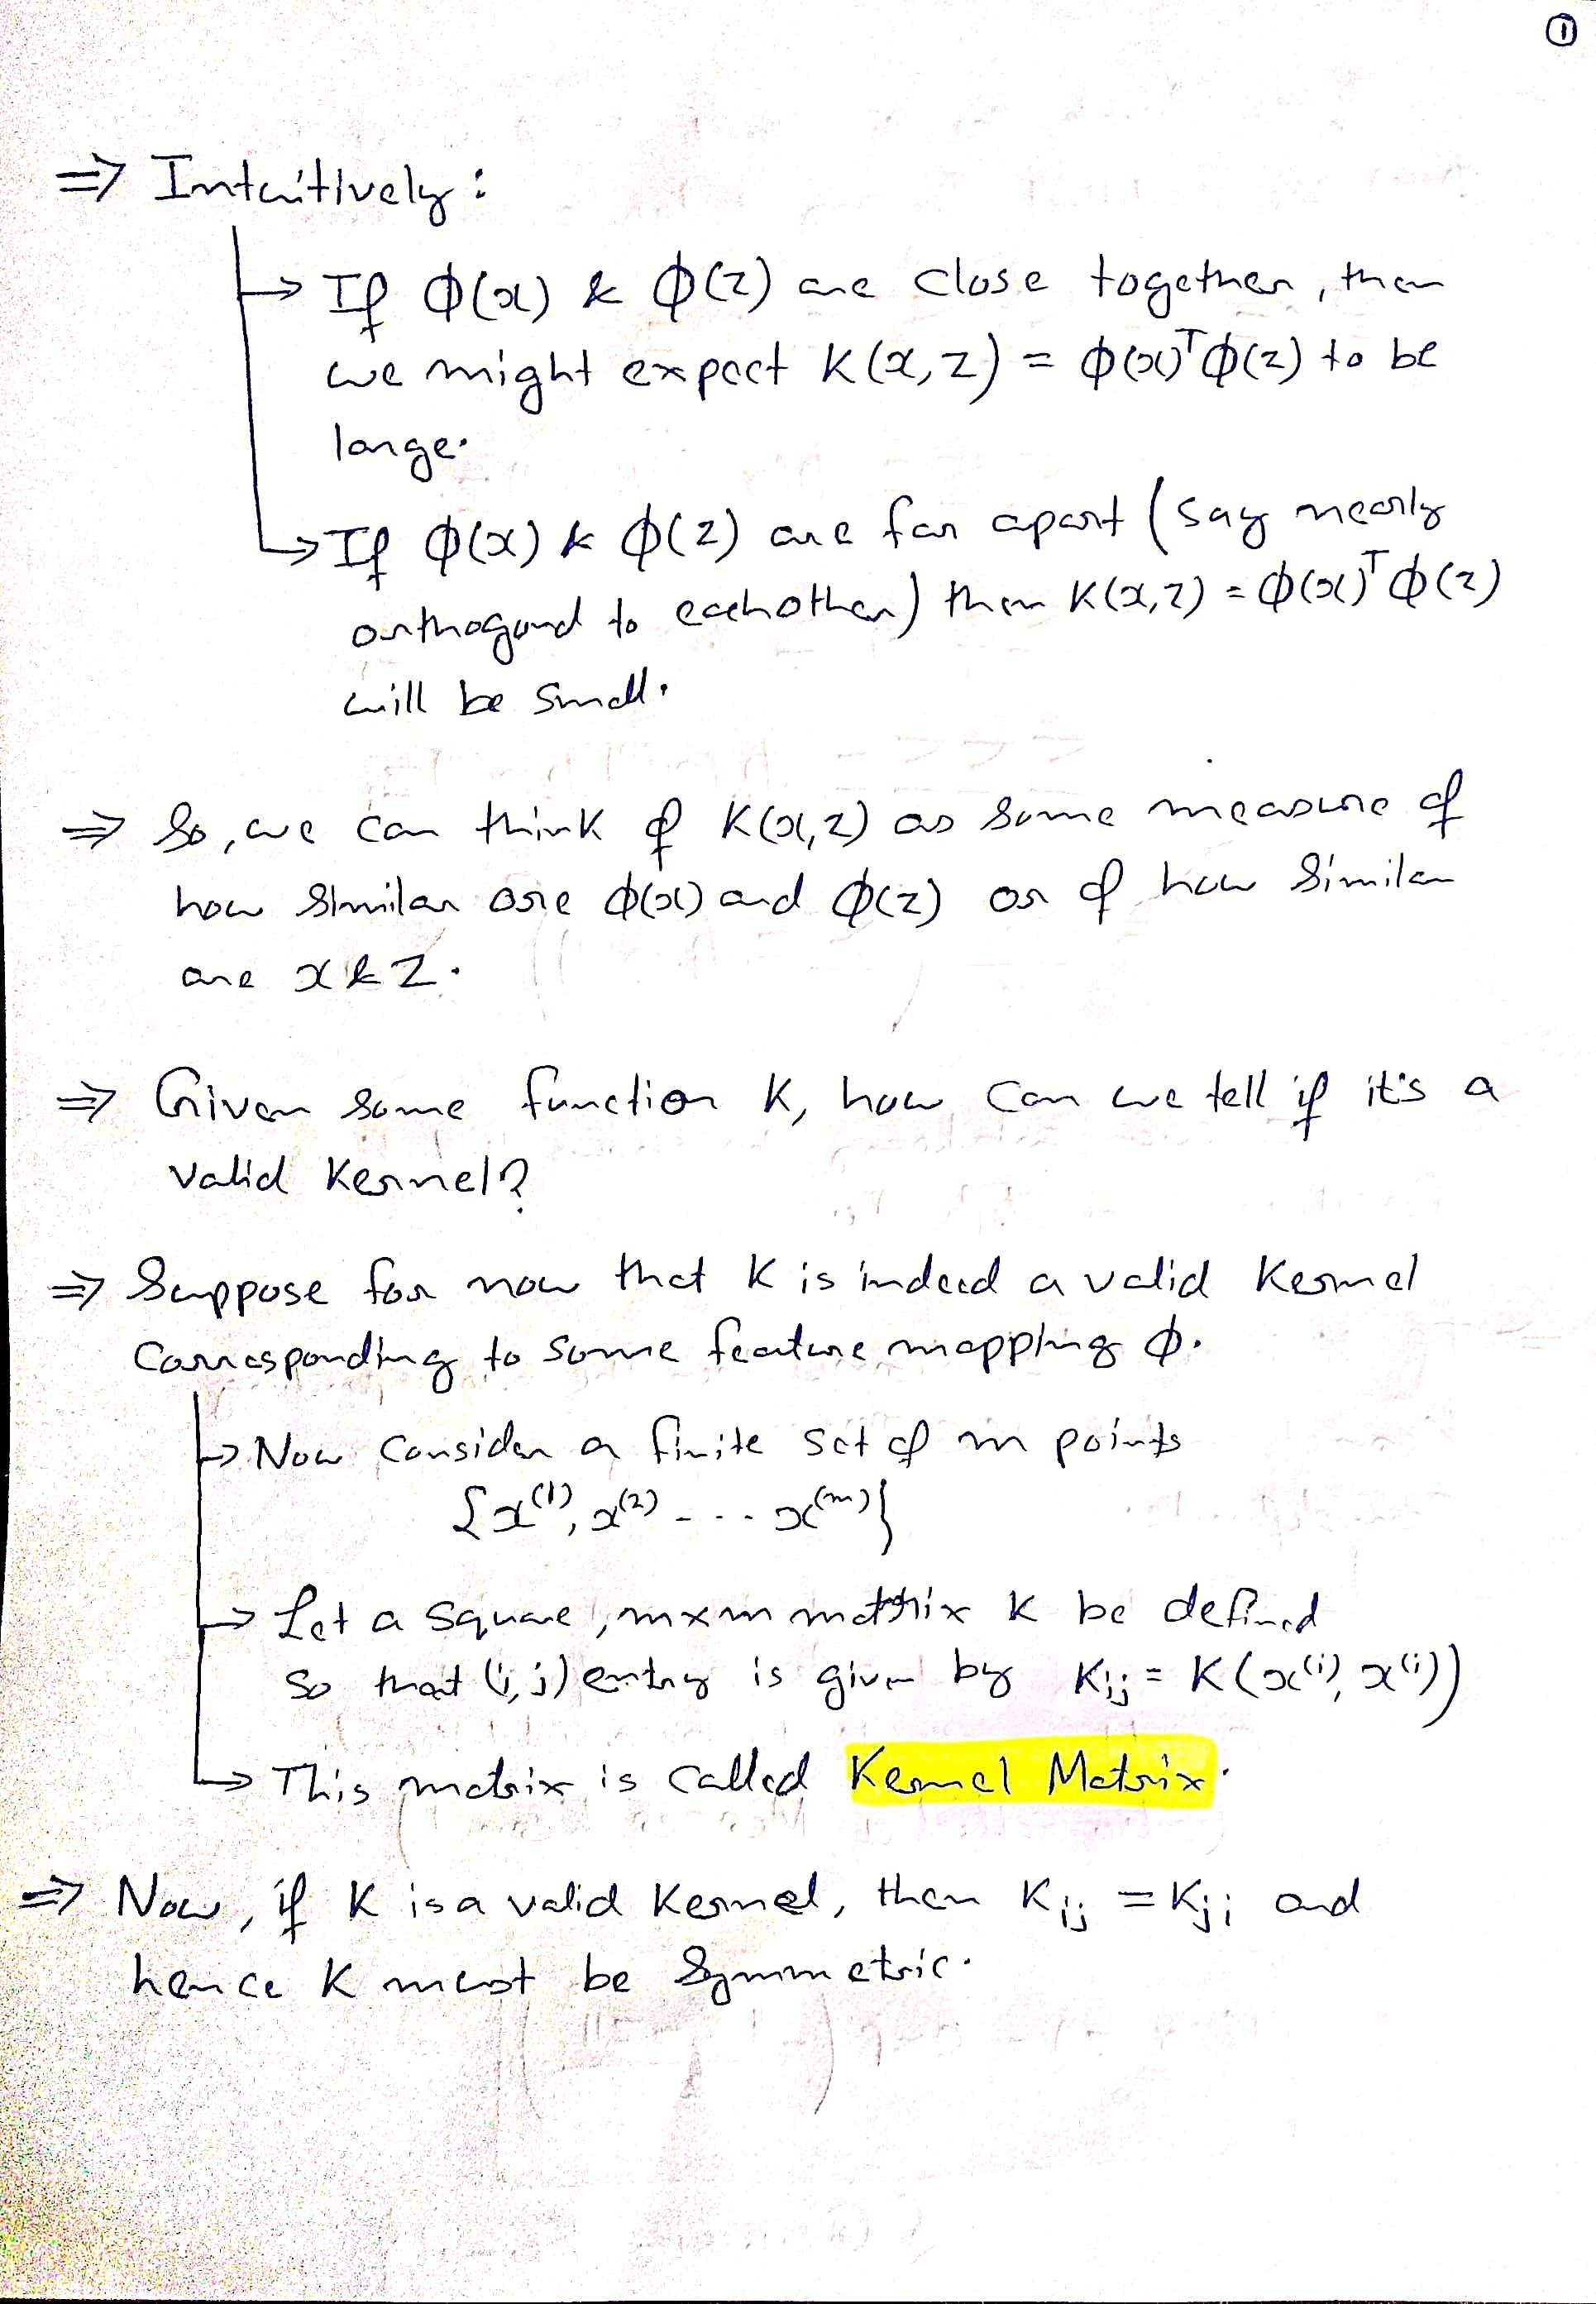 ①
⇒ Intuitively:
→ If ϕ(x) & ϕ(z) are close together, then
we might expect K(x,z) = ϕ(x)ᵀϕ(z) to be
large.
→ If ϕ(x) & ϕ(z) are far apart (say nearly
orthogonal to eachother) then K(x,z) = ϕ(x)ᵀϕ(z)
will be small.
⇒ So, we can think of K(x,z) as some measure of
how similar are ϕ(x) and ϕ(z) or of how similar
are x & z.
⇒ Given some function K, how can we tell if it's a
valid Kernel?
⇒ Suppose for now that K is indeed a valid Kernel
Corresponding to some feature mapping ϕ.
→ Now consider a finite set of m points
{x⁽¹⁾, x⁽²⁾ - . . . x⁽ᵐ⁾}
→ Let a square, m×m matrix K be defined
so that (i,j) entry is given by Kij = K(x⁽ⁱ⁾, x⁽ʲ⁾)
→ This matrix is called Kernel Matrix.
⇒ Now, if K is a valid Kernel, then Kij = Kji and
hence K must be Symmetric.